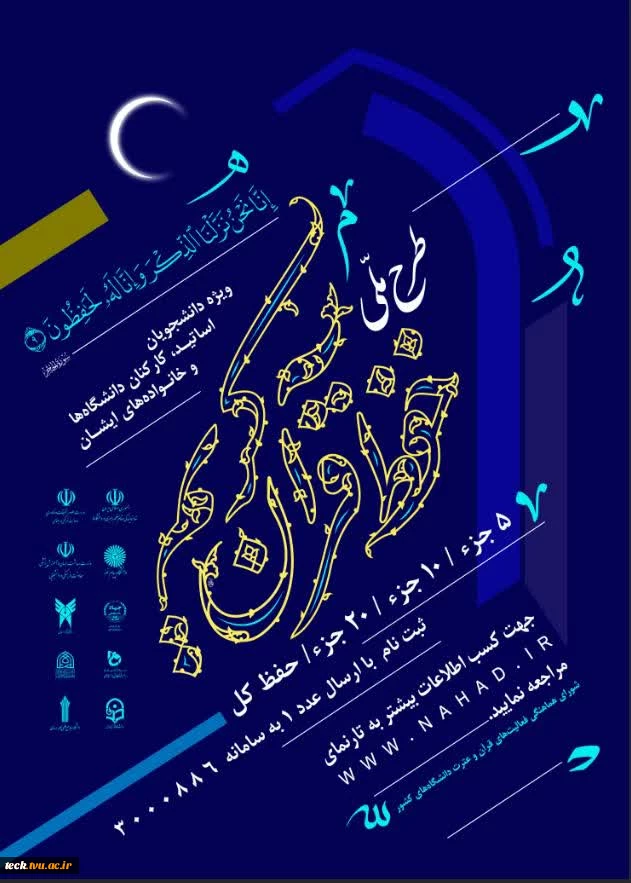 إِنَّا نَحْنُ نَزَّلْنَا الذِّكْرَ وَإِنَّا لَهُ لَحَافِظُونَ
ویژه دانشجویان
اساتید، کارکنان دانشگاه‌ها
و خانواده‌های ایشان
طرح ملّی
حفظ قرآن کریم
۵ جزء / ۱۰ جزء / ۲۰ جزء / حفظ کل
ثبت نام با ارسال عدد ۱ به سامانه ۳۰۰۰۸۸۶
جهت کسب اطلاعات بیشتر به تارنمای
WWW.NAHAD.IR
مراجعه نمایید.
شورای هماهنگی فعالیت‌های قرآن و عترت دانشگاه‌های کشور
teck.tvu.ac.ir